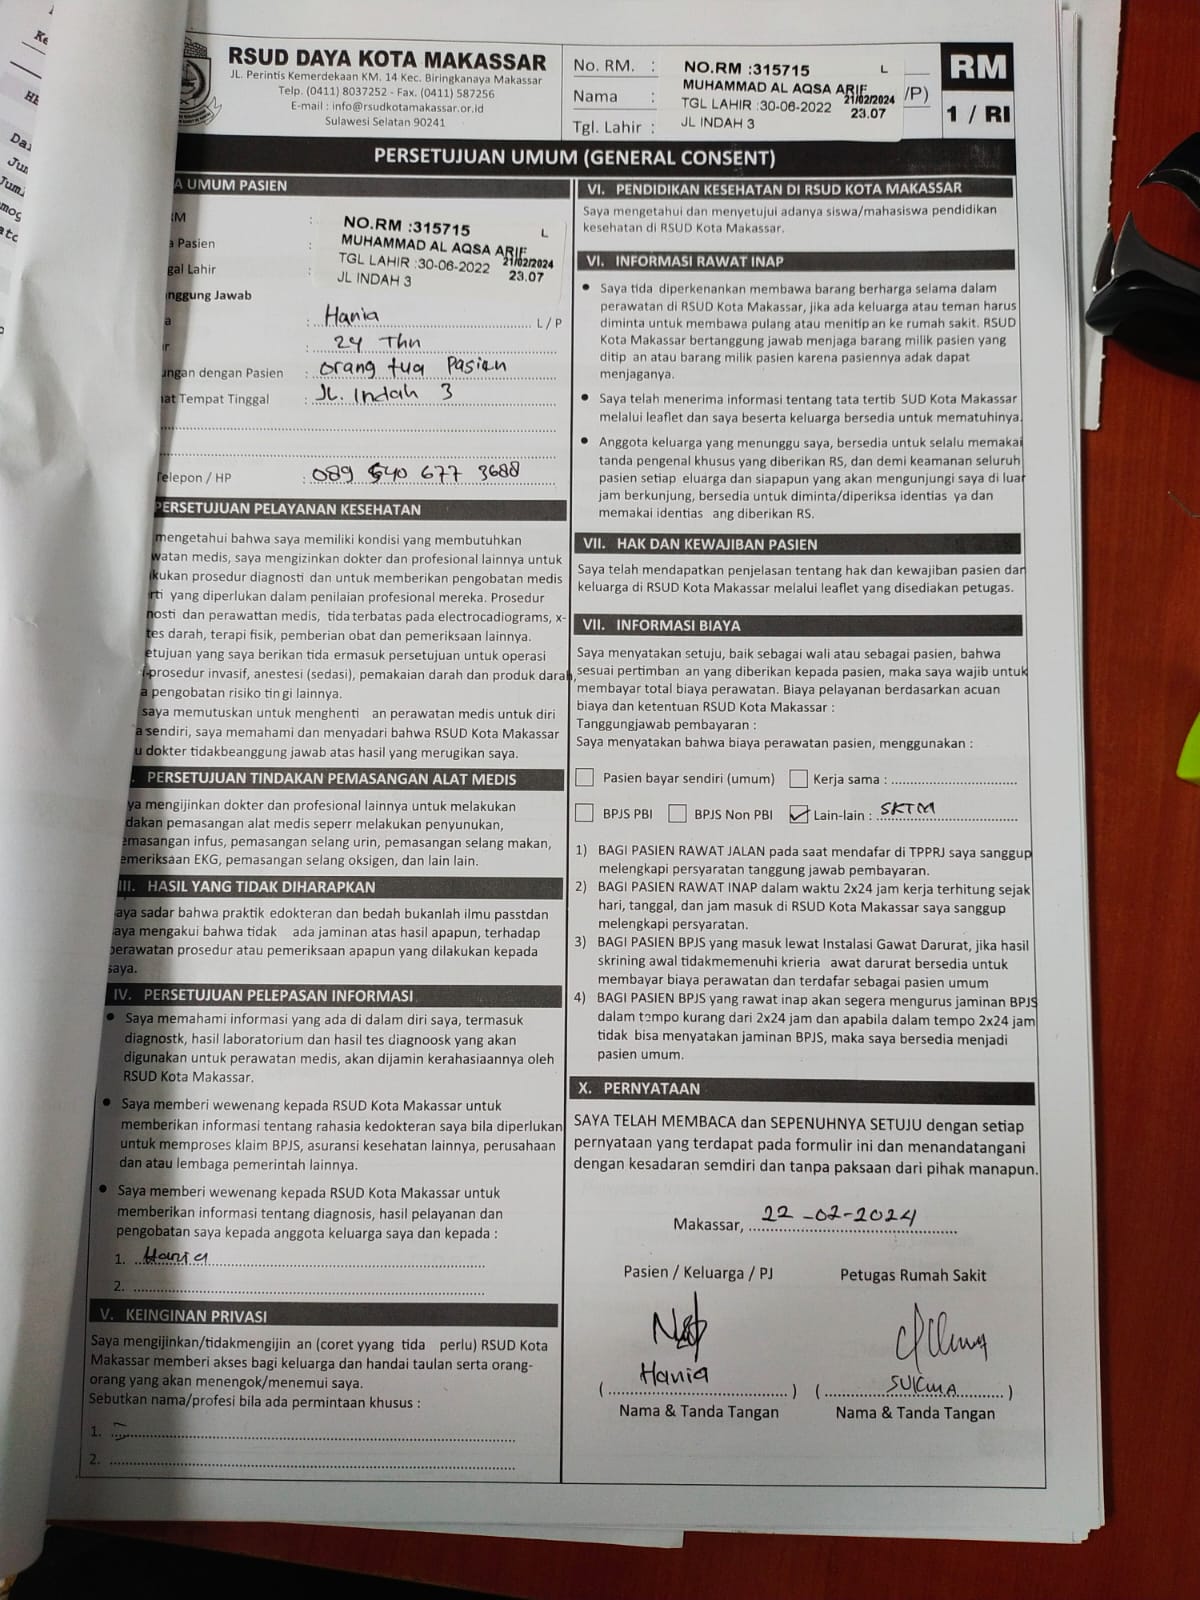 RSUD DAYA KOTA MAKASSAR
JL. Perintis Kemerdekaan KM. 14 Kec. Biringkanaya Makassar
Telp. (0411) 8037252 - Fax. (0411) 587256
E-mail : info@rsudkotamakassar.or.id
Sulawesi Selatan 90241
No. RM. :
Nama :
Tgl. Lahir :
NO.RM :315715 L
MUHAMMAD AL AQSA ARIF
TGL LAHIR :30-06-2022 21/02/2024
JL INDAH 3 23.07
/P)
RM
1 / RI
PERSETUJUAN UMUM (GENERAL CONSENT)
A UMUM PASIEN
RM :
a Pasien :
gal Lahir :
NO.RM :315715 L
MUHAMMAD AL AQSA ARIF
TGL LAHIR :30-06-2022 21/02/2024
JL INDAH 3 23.07
nggung Jawab
a : Hania L / P
r : 24 Thn
ungan dengan Pasien : orang tua Pasien
at Tempat Tinggal : JL. Indah 3
Telepon / HP : 089 540 677 3688
PERSETUJUAN PELAYANAN KESEHATAN
mengetahui bahwa saya memiliki kondisi yang membutuhkan
watan medis, saya mengizinkan dokter dan profesional lainnya untuk
kukan prosedur diagnosti dan untuk memberikan pengobatan medis
rti yang diperlukan dalam penilaian profesional mereka. Prosedur
nosti dan perawattan medis, tida terbatas pada electrocadiograms, x-
tes darah, terapi fisik, pemberian obat dan pemeriksaan lainnya.
etujuan yang saya berikan tida ermasuk persetujuan untuk operasi
prosedur invasif, anestesi (sedasi), pemakaian darah dan produk darah,
a pengobatan risiko tin gi lainnya.
saya memutuskan untuk menghenti an perawatan medis untuk diri
a sendiri, saya memahami dan menyadari bahwa RSUD Kota Makassar
u dokter tidakbeanggung jawab atas hasil yang merugikan saya.
PERSETUJUAN TINDAKAN PEMASANGAN ALAT MEDIS
ya mengijinkan dokter dan profesional lainnya untuk melakukan
dakan pemasangan alat medis seperr melakukan penyunukan,
emasangan infus, pemasangan selang urin, pemasangan selang makan,
emeriksaan EKG, pemasangan selang oksigen, dan lain lain.
III. HASIL YANG TIDAK DIHARAPKAN
aya sadar bahwa praktik edokteran dan bedah bukanlah ilmu passtdan
aya mengakui bahwa tidak ada jaminan atas hasil apapun, terhadap
perawatan prosedur atau pemeriksaan apapun yang dilakukan kepada
saya.
IV. PERSETUJUAN PELEPASAN INFORMASI
• Saya memahami informasi yang ada di dalam diri saya, termasuk
diagnostk, hasil laboratorium dan hasil tes diagnoosk yang akan
digunakan untuk perawatan medis, akan dijamin kerahasiaannya oleh
RSUD Kota Makassar.
• Saya memberi wewenang kepada RSUD Kota Makassar untuk
memberikan informasi tentang rahasia kedokteran saya bila diperlukan
untuk memproses klaim BPJS, asuransi kesehatan lainnya, perusahaan
dan atau lembaga pemerintah lainnya.
• Saya memberi wewenang kepada RSUD Kota Makassar untuk
memberikan informasi tentang diagnosis, hasil pelayanan dan
pengobatan saya kepada anggota keluarga saya dan kepada :
1. Hania
2.
V. KEINGINAN PRIVASI
Saya mengijinkan/tidakmengijin an (coret yyang tida perlu) RSUD Kota
Makassar memberi akses bagi keluarga dan handai taulan serta orang-
orang yang akan menengok/menemui saya.
Sebutkan nama/profesi bila ada permintaan khusus :
1.
2.
VI. PENDIDIKAN KESEHATAN DI RSUD KOTA MAKASSAR
Saya mengetahui dan menyetujui adanya siswa/mahasiswa pendidikan
kesehatan di RSUD Kota Makassar.
VI. INFORMASI RAWAT INAP
• Saya tida diperkenankan membawa barang berharga selama dalam
perawatan di RSUD Kota Makassar, jika ada keluarga atau teman harus
diminta untuk membawa pulang atau menitip an ke rumah sakit. RSUD
Kota Makassar bertanggung jawab menjaga barang milik pasien yang
ditip an atau barang milik pasien karena pasiennya adak dapat
menjaganya.
• Saya telah menerima informasi tentang tata tertib SUD Kota Makassar
melalui leaflet dan saya beserta keluarga bersedia untuk mematuhinya.
• Anggota keluarga yang menunggu saya, bersedia untuk selalu memakai
tanda pengenal khusus yang diberikan RS, dan demi keamanan seluruh
pasien setiap eluarga dan siapapun yang akan mengunjungi saya di luar
jam berkunjung, bersedia untuk diminta/diperiksa identias ya dan
memakai identias ang diberikan RS.
VII. HAK DAN KEWAJIBAN PASIEN
Saya telah mendapatkan penjelasan tentang hak dan kewajiban pasien dan
keluarga di RSUD Kota Makassar melalui leaflet yang disediakan petugas.
VII. INFORMASI BIAYA
Saya menyatakan setuju, baik sebagai wali atau sebagai pasien, bahwa
sesuai pertimban an yang diberikan kepada pasien, maka saya wajib untuk
membayar total biaya perawatan. Biaya pelayanan berdasarkan acuan
biaya dan ketentuan RSUD Kota Makassar :
Tanggungjawab pembayaran :
Saya menyatakan bahwa biaya perawatan pasien, menggunakan :
Pasien bayar sendiri (umum) Kerja sama :
BPJS PBI BPJS Non PBI Lain-lain : SKTM
1) BAGI PASIEN RAWAT JALAN pada saat mendafar di TPPRJ saya sanggup
melengkapi persyaratan tanggung jawab pembayaran.
2) BAGI PASIEN RAWAT INAP dalam waktu 2x24 jam kerja terhitung sejak
hari, tanggal, dan jam masuk di RSUD Kota Makassar saya sanggup
melengkapi persyratan.
3) BAGI PASIEN BPJS yang masuk lewat Instalasi Gawat Darurat, jika hasil
skrining awal tidakmemenuhi krieria awat darurat bersedia untuk
membayar biaya perawatan dan terdafar sebagai pasien umum
4) BAGI PASIEN BPJS yang rawat inap akan segera mengurus jaminan BPJS
dalam tempo kurang dari 2x24 jam dan apabila dalam tempo 2x24 jam
tidak bisa menyatakan jaminan BPJS, maka saya bersedia menjadi
pasien umum.
X. PERNYATAAN
SAYA TELAH MEMBACA dan SEPENUHNYA SETUJU dengan setiap
pernyataan yang terdapat pada formulir ini dan menandatangani
dengan kesadaran semdiri dan tanpa paksaan dari pihak manapun.
Makassar, 22-02-2024
Pasien / Keluarga / PJ Petugas Rumah Sakit
( Hania ) ( SUKMA )
Nama & Tanda Tangan Nama & Tanda Tangan